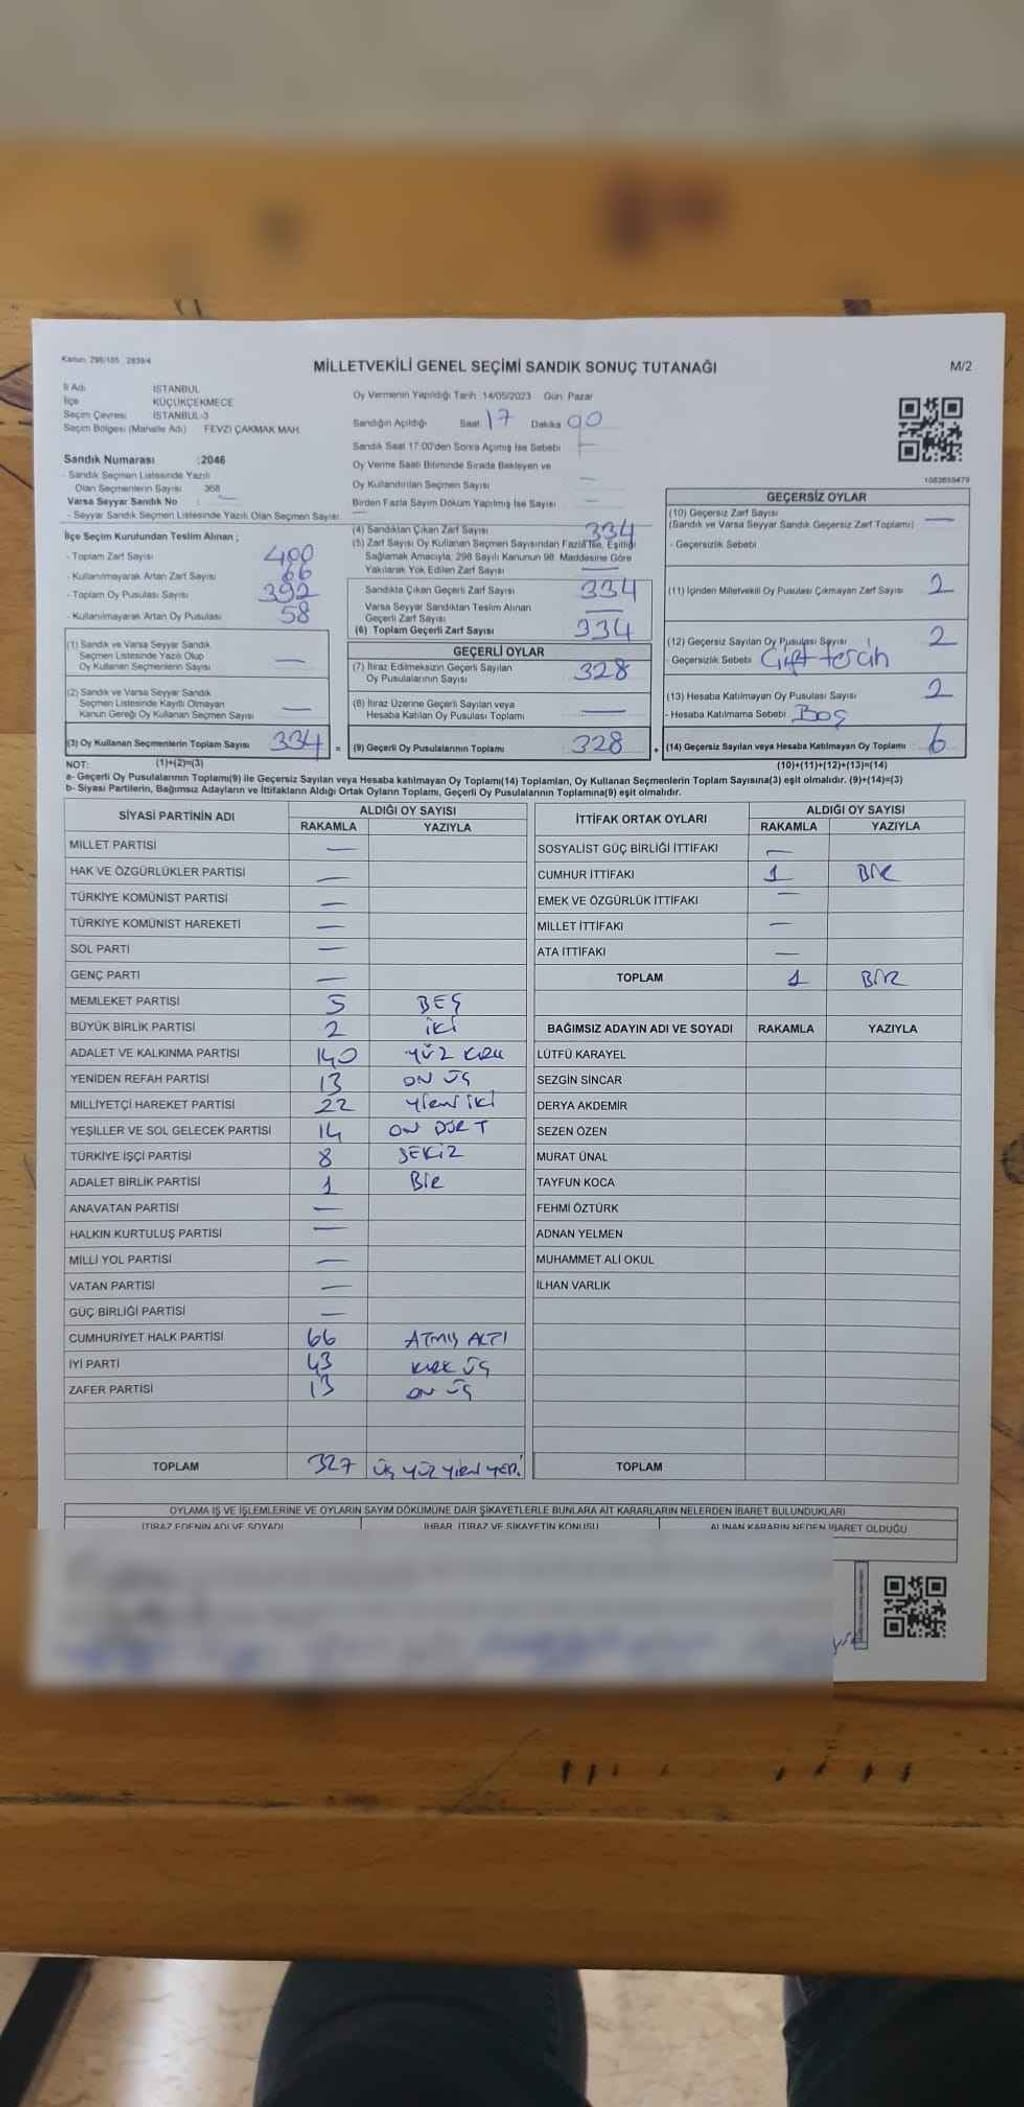 Kanun: 298/105 2839/4
MİLLETVEKİLİ GENEL SEÇİMİ SANDIK SONUÇ TUTANAĞI
M/2
İl Adı İSTANBUL
İlçe KÜÇÜKÇEKMECE
Seçim Çevresi İSTANBUL-3
Seçim Bölgesi (Mahalle Adı) FEVZİ ÇAKMAK MAH.
Sandık Numarası :2046
- Sandık Seçmen Listesinde Yazılı
Olan Seçmenlerin Sayısı 368
Varsa Seyyar Sandık No :
- Seyyar Sandık Seçmen Listesinde Yazılı Olan Seçmen Sayısı:
Oy Vermenin Yapıldığı Tarih :14/05/2023 Gün: Pazar
Sandığın Açıldığı Saat 17 Dakika 00
Sandık Saat 17:00'den Sonra Açılmış İse Sebebi
Oy Verme Saati Bitiminde Sırada Bekleyen ve
Oy Kullandırılan Seçmen Sayısı —
Birden Fazla Sayım Döküm Yapılmış İse Sayısı —
1083659479
İlçe Seçim Kurulundan Teslim Alınan ;
- Toplam Zarf Sayısı 400
- Kullanılmayarak Artan Zarf Sayısı 66
- Toplam Oy Pusulası Sayısı 392
- Kullanılmayarak Artan Oy Pusulası 58
(1) Sandık ve Varsa Seyyar Sandık
Seçmen Listesinde Yazılı Olup
Oy Kullanan Seçmenlerin Sayısı —
(2) Sandık ve Varsa Seyyar Sandık
Seçmen Listesinde Kayıtlı Olmayan
Kanun Gereği Oy Kullanan Seçmen Sayısı —
(3) Oy Kullanan Seçmenlerin Toplam Sayısı 334 =
(4) Sandıktan Çıkan Zarf Sayısı 334
(5) Zarf Sayısı Oy Kullanan Seçmen Sayısından Fazla İse, Eşitliği
Sağlamak Amacıyla, 298 Sayılı Kanunun 98. Maddesine Göre
Yakılarak Yok Edilen Zarf Sayısı —
Sandıkta Çıkan Geçerli Zarf Sayısı 334
Varsa Seyyar Sandıktan Teslim Alınan
Geçerli Zarf Sayısı —
(6) Toplam Geçerli Zarf Sayısı 334
GEÇERLİ OYLAR
(7) İtiraz Edilmeksizin Geçerli Sayılan
Oy Pusulalarının Sayısı 328
(8) İtiraz Üzerine Geçerli Sayılan veya
Hesaba Katılan Oy Pusulası Toplamı —
(9) Geçerli Oy Pusulalarının Toplamı 328 +
GEÇERSİZ OYLAR
(10) Geçersiz Zarf Sayısı
(Sandık ve Varsa Seyyar Sandık Geçersiz Zarf Toplamı) —
- Geçersizlik Sebebi
(11) İçinden Milletvekili Oy Pusulası Çıkmayan Zarf Sayısı 2
(12) Geçersiz Sayılan Oy Pusulası Sayısı 2
- Geçersizlik Sebebi Çift tercih
(13) Hesaba Katılmayan Oy Pusulası Sayısı 2
- Hesaba Katılmama Sebebi Boş
(14) Geçersiz Sayılan veya Hesaba Katılmayan Oy Toplamı 6
NOT: (1)+(2)=(3)
(10)+(11)+(12)+(13)=(14)
a- Geçerli Oy Pusulalarının Toplamı(9) ile Geçersiz Sayılan veya Hesaba katılmayan Oy Toplamı(14) Toplamları, Oy Kullanan Seçmenlerin Toplam Sayısına(3) eşit olmalıdır. (9)+(14)=(3)
b- Siyasi Partilerin, Bağımsız Adayların ve İttifakların Aldığı Ortak Oyların Toplamı, Geçerli Oy Pusulalarının Toplamına(9) eşit olmalıdır.
SİYASİ PARTİNİN ADI ALDIĞI OY SAYISI
RAKAMLA YAZIYLA
MİLLET PARTİSİ —
HAK VE ÖZGÜRLÜKLER PARTİSİ —
TÜRKİYE KOMÜNİST PARTİSİ —
TÜRKİYE KOMÜNİST HAREKETİ —
SOL PARTİ —
GENÇ PARTİ —
MEMLEKET PARTİSİ 5 BEŞ
BÜYÜK BİRLİK PARTİSİ 2 İKİ
ADALET VE KALKINMA PARTİSİ 140 YÜZ KIRK
YENİDEN REFAH PARTİSİ 13 ON ÜÇ
MİLLİYETÇİ HAREKET PARTİSİ 22 YİRMİ İKİ
YEŞİLLER VE SOL GELECEK PARTİSİ 14 ON DÖRT
TÜRKİYE İŞÇİ PARTİSİ 8 SEKİZ
ADALET BİRLİK PARTİSİ 1 BİR
ANAVATAN PARTİSİ —
HALKIN KURTULUŞ PARTİSİ —
MİLLİ YOL PARTİSİ —
VATAN PARTİSİ —
GÜÇ BİRLİĞİ PARTİSİ —
CUMHURİYET HALK PARTİSİ 66 ATMIŞ ALTI
İYİ PARTİ 43 KIRK ÜÇ
ZAFER PARTİSİ 13 ON ÜÇ
TOPLAM 327 ÜÇ YÜZ YİRMİ YEDİ
İTTİFAK ORTAK OYLARI ALDIĞI OY SAYISI
RAKAMLA YAZIYLA
SOSYALİST GÜÇ BİRLİĞİ İTTİFAKI —
CUMHUR İTTİFAKI 1 BİR
EMEK VE ÖZGÜRLÜK İTTİFAKI —
MİLLET İTTİFAKI —
ATA İTTİFAKI —
TOPLAM 1 BİR
BAĞIMSIZ ADAYIN ADI VE SOYADI RAKAMLA YAZIYLA
LÜTFÜ KARAYEL
SEZGİN SİNCAR
DERYA AKDEMİR
SEZEN ÖZEN
MURAT ÜNAL
TAYFUN KOCA
FEHMİ ÖZTÜRK
ADNAN YELMEN
MUHAMMET ALİ OKUL
İLHAN VARLIK
TOPLAM
OYLAMA İŞ VE İŞLEMLERİNE VE OYLARIN SAYIM DÖKÜMÜNE DAİR ŞİKAYETLERLE BUNLARA AİT KARARLARIN NELERDEN İBARET BULUNDUKLARI
İTİRAZ EDENİN ADI VE SOYADI İHBAR, İTİRAZ VE ŞİKAYETİN KONUSU ALINAN KARARIN NEDEN İBARET OLDUĞU